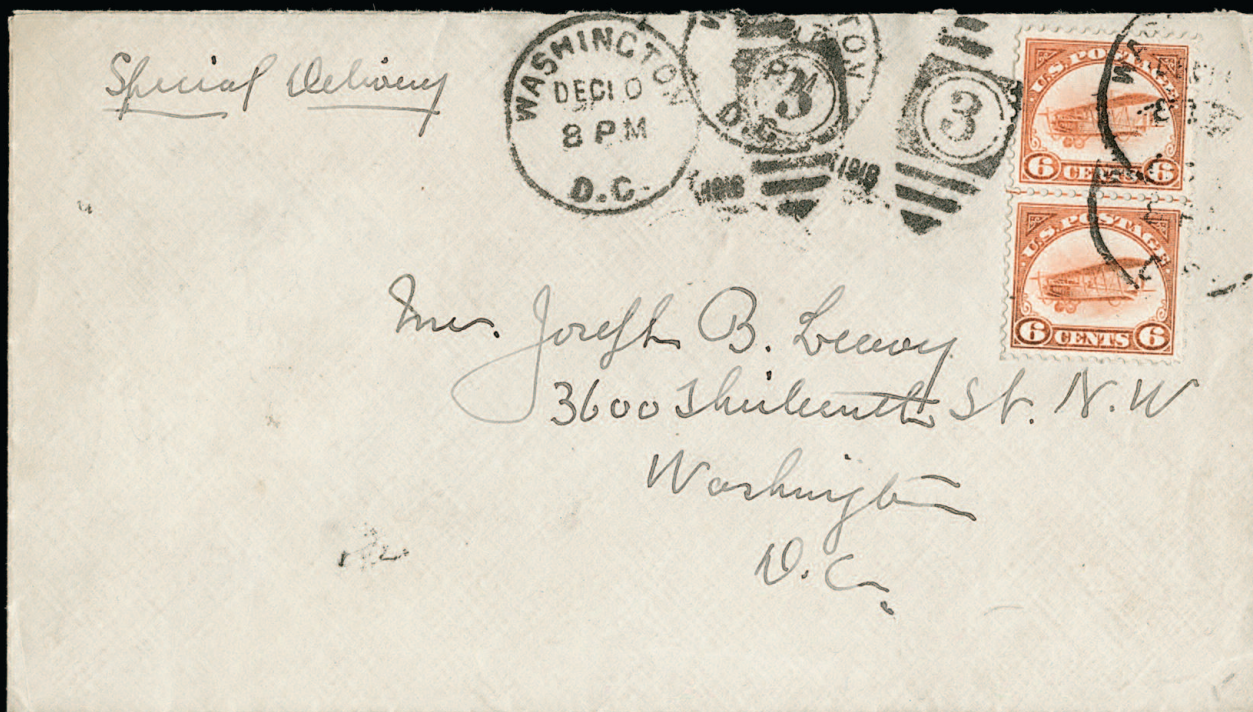 Special Delivery
WASHINGTON
DEC 10
8 PM
D.C.
1918
TON
D.C.
3
1918
3
U.S. POSTAGE
6 CENTS 6
U.S. POSTAGE
6 CENTS 6
Mr. Joseph B. Leavy
3600 Thirteenth St. N.W
Washington
D.C.